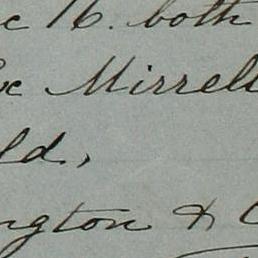 c 16. both
c Mirrell
ld,
ngton &